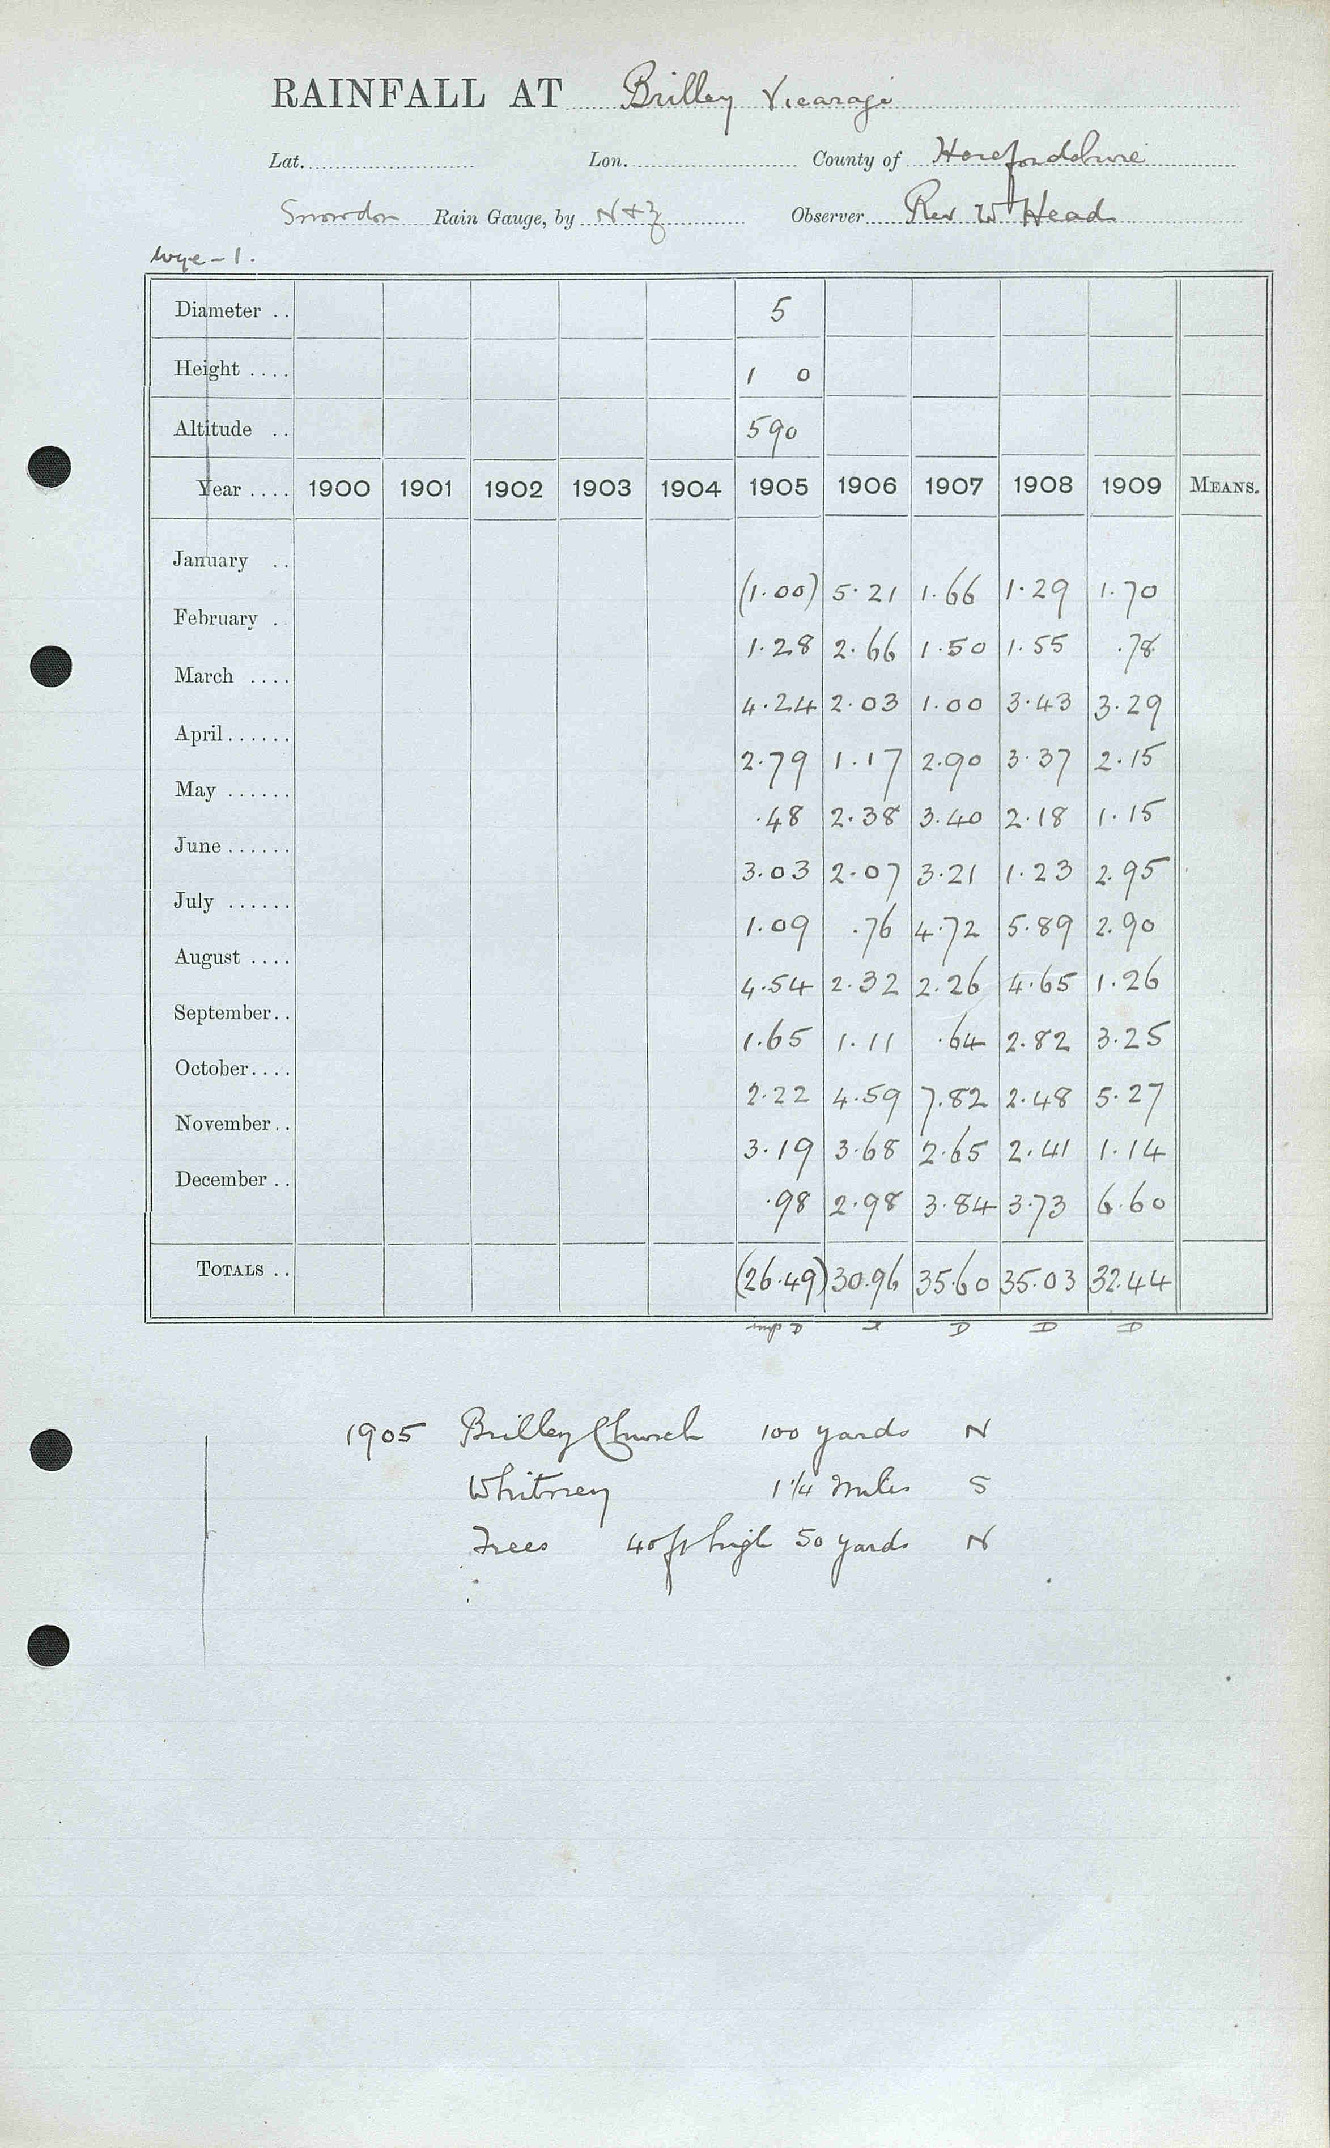 RAINFALL AT Brilley Vicarage
Lat. Lon. County of Herefordshire
Snowdon Rain Gauge, by N & Z Observer Rev W Head
Wye - 1.
Diameter .. 5
Height .... 1 0
Altitude .. 590
Year .... 1900 1901 1902 1903 1904 1905 1906 1907 1908 1909 MEANS.
January .. (1.00) 5.21 1.66 1.29 1.70
February . 1.28 2.66 1.50 1.55 .78
March .... 4.24 2.03 1.00 3.43 3.29
April...... 2.79 1.17 2.90 3.37 2.15
May ...... .48 2.38 3.40 2.18 1.15
June ...... 3.03 2.07 3.21 1.23 2.95
July ...... 1.09 .76 4.72 5.89 2.90
August .... 4.54 2.32 2.26 4.65 1.26
September.. 1.65 1.11 .64 2.82 3.25
October.... 2.22 4.59 7.82 2.48 5.27
November.. 3.19 3.68 2.65 2.41 1.14
December .. .98 2.98 3.84 3.73 6.60
TOTALS .. (26.49) 30.96 35.60 35.03 32.44
D D D D
1905 Brilley Church 100 yards N
Whitney 1 1/4 miles S
Trees 40 ft high 50 yards N